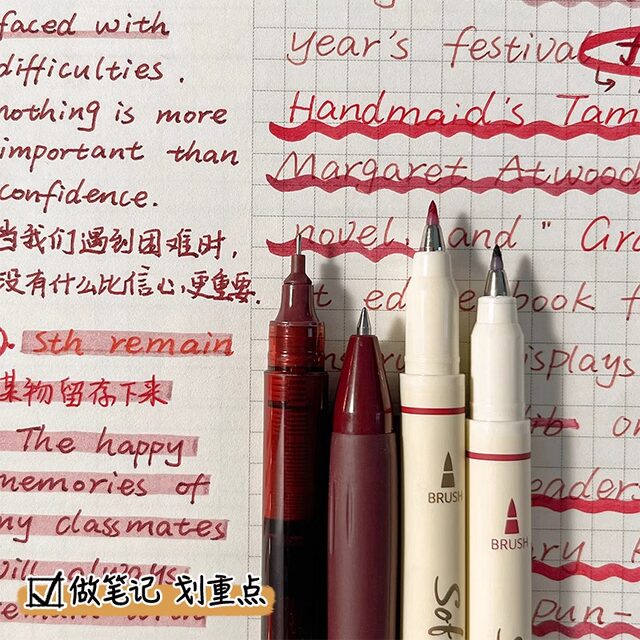 faced with
difficulties.
nothing is more
important than
confidence.
当我们遇到困难时,
没有什么比信心更重要.
sth remain
某物留存下来
The happy
memories of
my classmates
will always
remain with
year's festival
Handmaid's Tam
Margaret Atwood
novel, and "Gra
book f
isplays
on
eader
pun-
BRUSH
BRUSH
做笔记 划重点